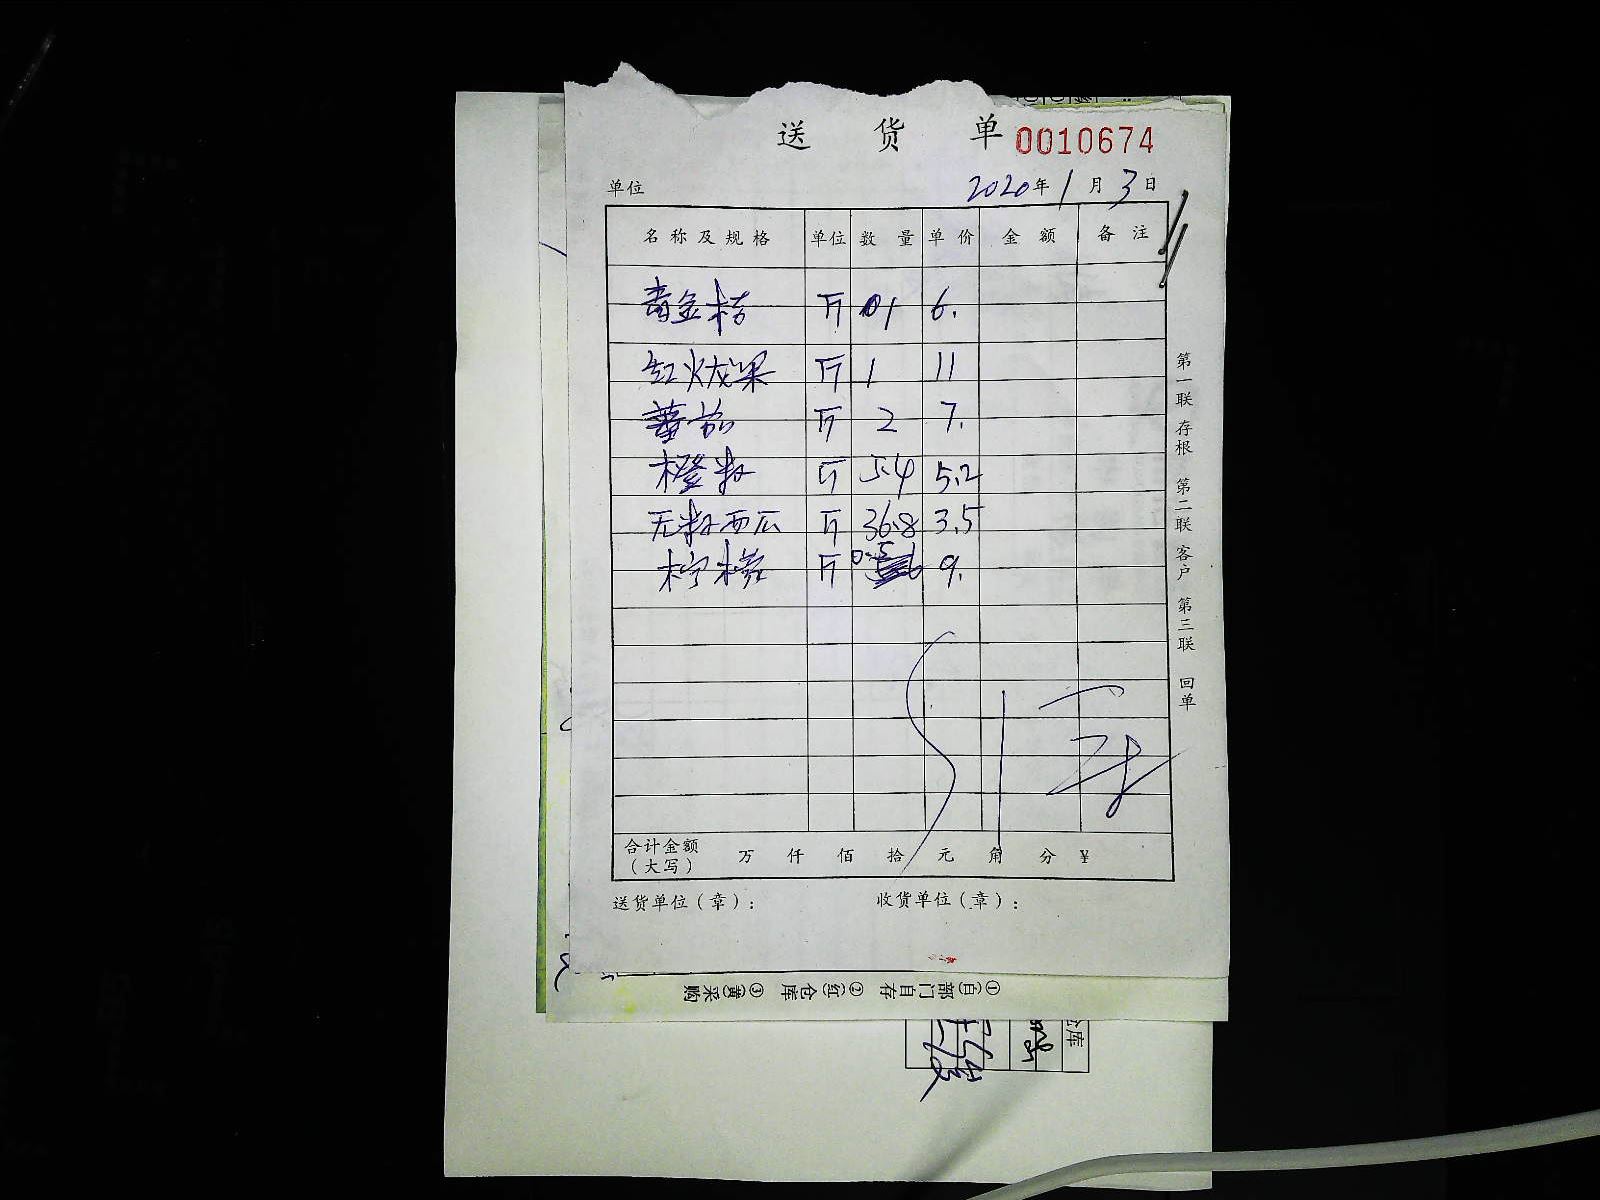 送货单 0010674
单位 2020年1月3日
名称及规格 单位 数量 单价 金额 备注
黄金桔 斤 1 6.
红火龙果 斤 1 11
蕃茄 斤 2 7.
橙籽 斤 5.4 5.2
无籽西瓜 斤 36.8 3.5
柠檬 斤 0.5 9.
合计金额(大写) 万 仟 佰 拾 元 角 分 ¥
送货单位(章): 收货单位(章):
第一联 存根 第二联 客户 第三联 回单
①(白)部门自存 ②(红)仓库 ③(黄)采购
仓库